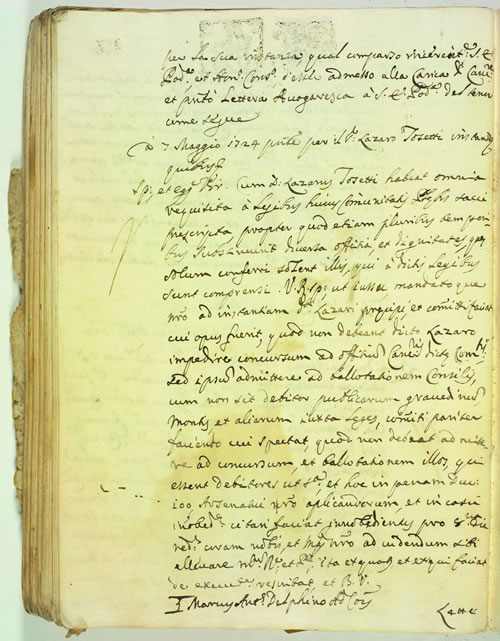 per la sua instanza, qual comparso riverent.e S. E.
Pod.à, et Hon. Cons.o, d'esser admesso alla Carica di Canc.
et p.ntò Lettera Avogaresca à S. E. Pod.à del tenor
come segue
à 7 Maggio 1724 p.nte per il S.r Lazaro Tosetti instando
Cum D. Lazarus Tosetti habeat omnia
requisita à Legibus huius Comunitatis
prescripta, propter quod etiam pluribus tempori
bus substinuerit diversa officia, et dignitates que
solum conferri solent illis, qui à dictis Legibus
sunt comprensi: V. R. ut iussu mandato que
n.ro ad instantiam d.ti Lazari precipi, et comitti faciat
cui opus fuerit, quod non debeant dicto Lazaro
impedire concursum ad officium Canc. dictæ Com.tis
sed ipsum admittere ad ballotationem Consilij,
cum non sit debitor publicarum gravedinum
Montis, et aliarum iuxta Leges, comitti pariter
faciendo cui spectat, quod non debeat admitte
re ad concursum, et ballotationem illos, qui
essent debitores ut s.a, et hoc in penam Duc.
100 Arsenatui n.ro aplicandorum, et in casu
inobed. citari faciat inobedientes pro
coram nobis, et ad videndum sibi
ita exequat. et exequi faciat
de rescribat, et B. V.
Marcus Ant. Delphino Av. Com.
Latte